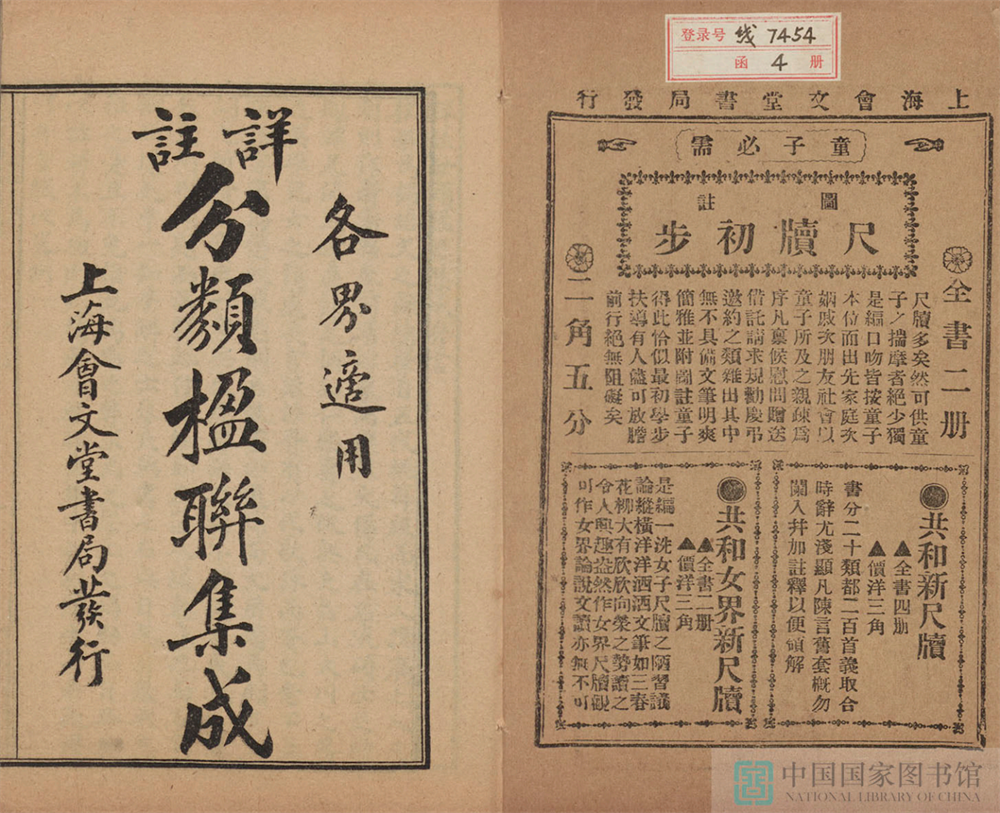 登录号 线 7454
函 4 册
上海會文堂書局發行
童子必需
圖註
尺牘初步
全書二册
尺牘多矣然可供童
子之揣摩者絕少獨
是編口吻皆按童子
本位而出先家庭次
姻戚次朋友社會以
童子所及之親疎爲
序凡稟候慰問贈送
借託請求規勸慶弔
邀約之類雜出其中
無不具備文筆明爽
簡雅並附圖註童子
得此恰似最初學步
扶導有人儘可放膽
前行絕無阻礙矣
二角五分
共和新尺牘
▲全書四册
▲價洋三角
書分二十類都二百首義取合
時辭尤淺顯凡陳言舊套概勿
闌入幷加註釋以便領解
共和女界新尺牘
▲全書二册
▲價洋三角
是編一洗女子尺牘之陋習議
論縱橫洋洋洒洒文筆如三春
花柳大有欣欣向榮之勢讀之
令人興趣盎然作女界尺牘觀
可作女界論說文讀亦無不可
各界適用
詳註
分類楹聯集成
上海會文堂書局發行
中国国家图书馆
NATIONAL LIBRARY OF CHINA